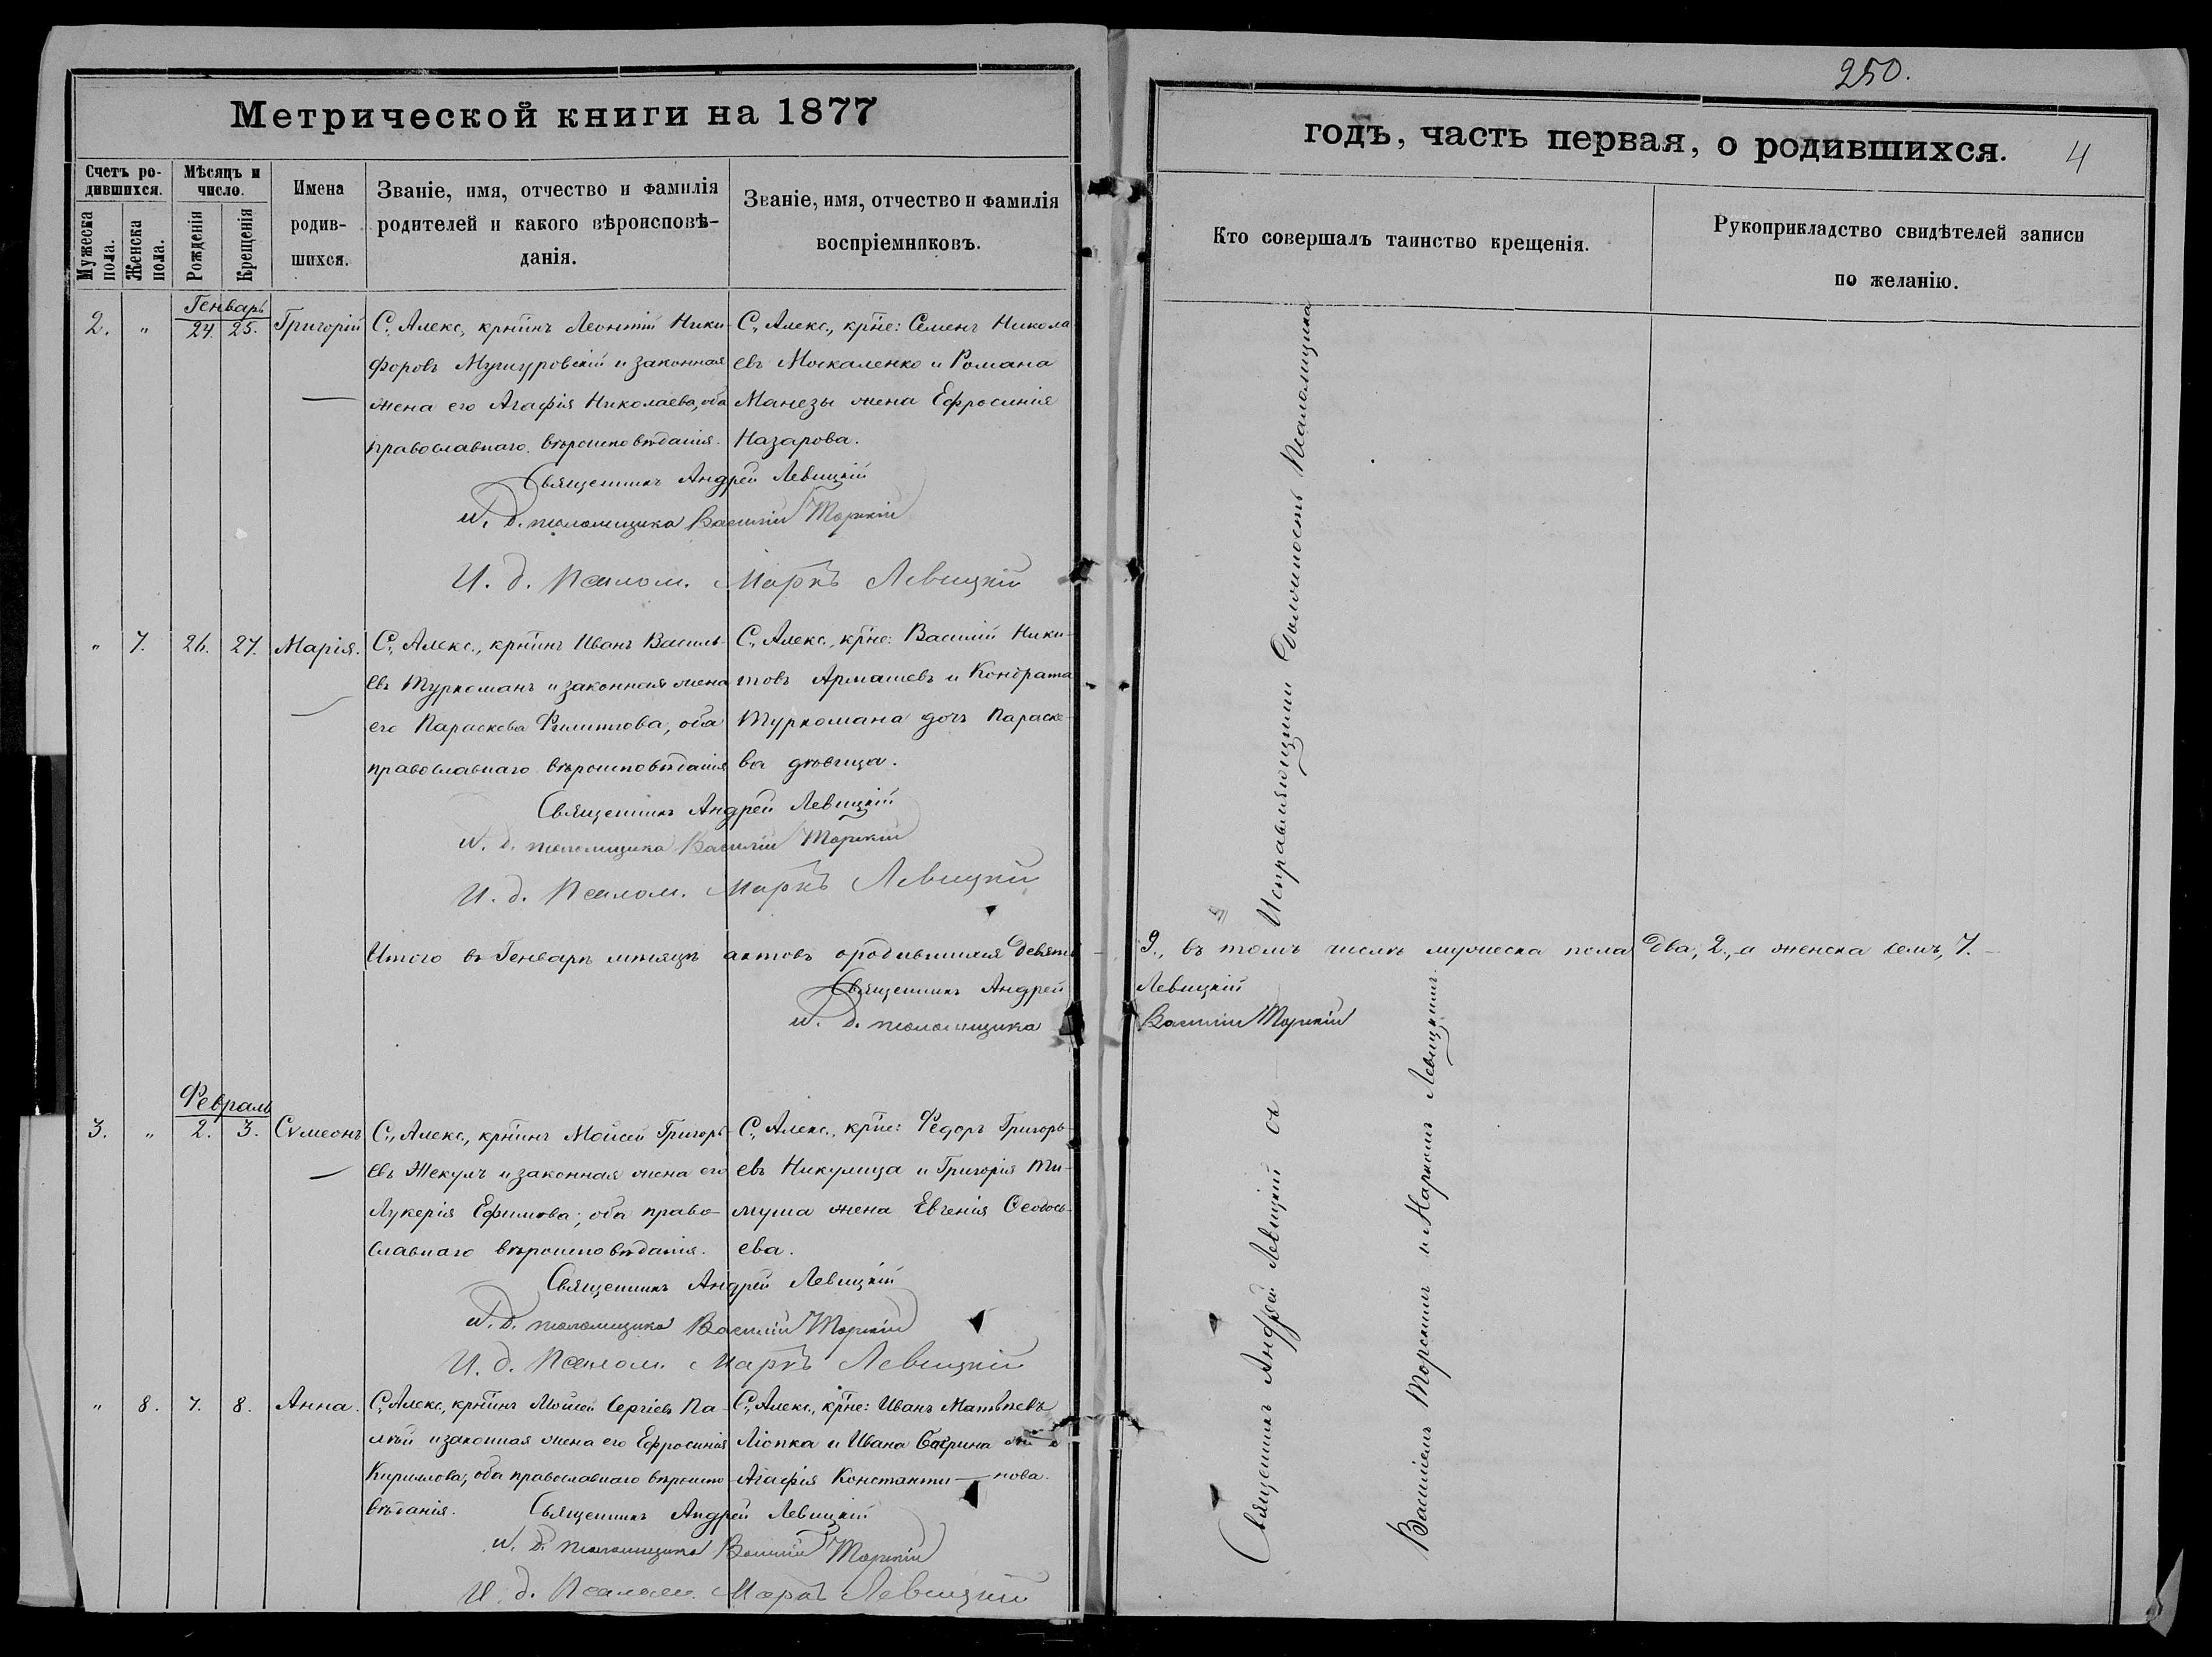 250.
Метрической книги на 1877
годъ, часть первая, о родившихся.
4
Счетъ ро-
дившихся.
Мужеска
пола.
Женска
пола.
Мѣсяцъ и
число.
Рожденія
Крещенія
Имена
родив-
шихся.
Званіе, имя, отчество и фамилія
родителей и какого вѣроисповѣ-
данія.
Званіе, имя, отчество и фамилія
воспріемниковъ.
Кто совершалъ таинство крещенія.
Рукоприкладство свидѣтелей записи
по желанію.
Генварь
2. " 24. 25. Григорій
С. Алекс, крнинъ Леонтій Ники-
форовъ и законная
жена его Агафія Николаева, оба
православнаго вѣроисповѣданія.
С. Алекс., крне: Семенъ Никола
евъ Москаленко и Романа
Манезы жена Ефросинія
Назарова.
Священникъ Андрей Левицкій
И. д. псаломщика Василій Торскій
И. д. Псалом. Маркъ Левицкій
" 7. 26. 27. Марія.
С. Алекс., крнинъ Иванъ Василь-
евъ Туркоманъ и законная жена
его Параскева Филиппова, оба
православнаго вѣроисповѣданія
С. Алекс., крне: Василій Ники-
товъ Армашевъ и Кондрата
Туркомана дочь Параске-
ва дѣвица.
Священникъ Андрей Левицкій
И. д. псаломщика Василій Торскій
И. д. Псалом. Маркъ Левицкій
Итого въ Генварѣ мѣсяцѣ актовъ о родившихся девять – 9., въ томъ числѣ мужеска пола два, 2., а женска семь, 7. –
Священникъ Андрей Левицкій
И. д. псаломщика Василій Торскій
Февраль
3. " 2. 3. Сѵмеонъ
С. Алекс., крнинъ Мойсей Григорь-
евъ Жекулъ и законная жена его
Лукерія Ефимова, оба право-
славнаго вѣроисповѣданія.
С. Алекс., крне: Федоръ Григорь-
евъ Никулица и Григорія Ти-
муша жена Евгенія Ѳеодось-
ева.
Священникъ Андрей Левицкій
И. д. псаломщика Василій Торскій
И. д. Псалом. Маркъ Левицкій
" 8. 7. 8. Анна.
С. Алекс., крнинъ Мойсей Сергіевъ Па-
лій и законная жена его Ефросинія
Кирилова, оба православнаго вѣроиспо
вѣданія.
С. Алекс., крне: Иванъ Матвѣевъ
Ліопка и Ивана
Агафія Константи – нова.
Священникъ Андрей Левицкій
И. д. псаломщика Василій Торскій
И. д. Псалом. Маркъ Левицкій
Священникъ Андрей Левицкій съ Исправляющими Должность Псаломщика
Василіемъ Торскимъ и Маркомъ Левицкимъ.